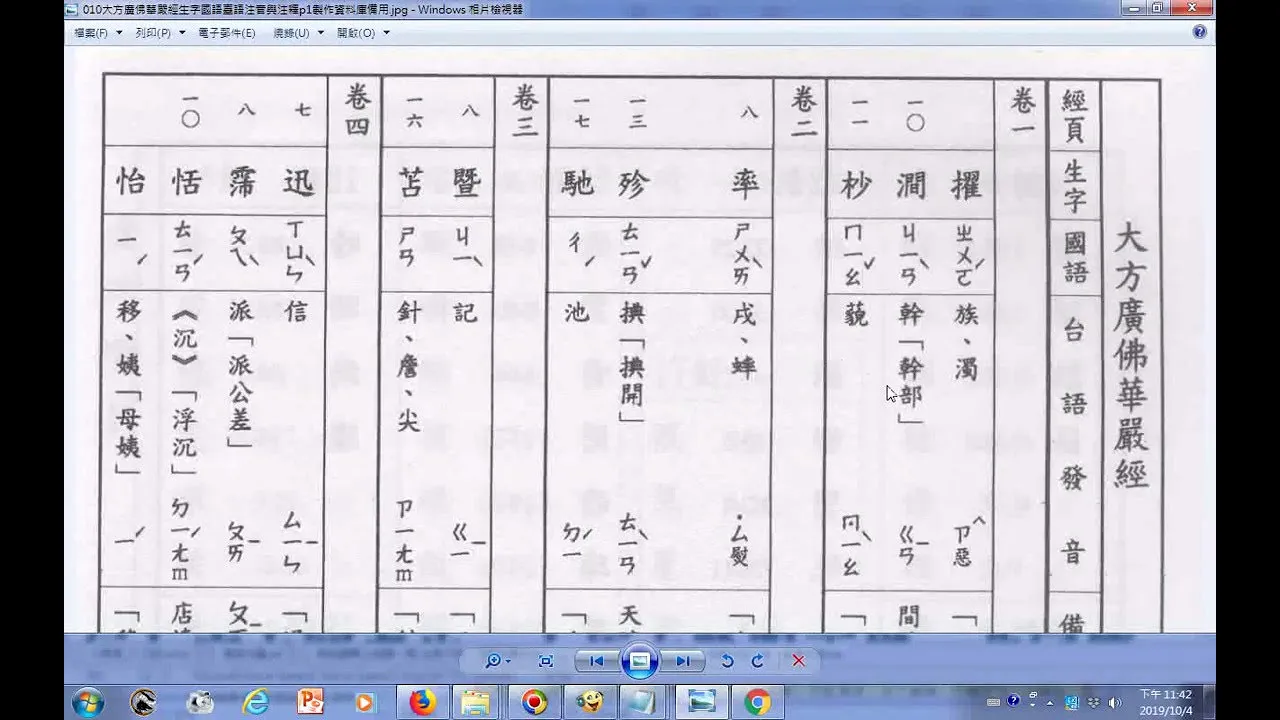 010大方廣佛華嚴經生字國語臺語注音與注釋p1製作資料庫備用.jpg - Windows 相片檢視器
檔案(F) 列印(P) 電子郵件(E) 燒錄(U) 開啟(O)
大方廣佛華嚴經
經頁 生字 國語 台語發音 備
卷一
一〇 擢 ㄓㄨㄛˊ 族、濁 ㄗ惡^ 「
澗 ㄐㄧㄢˋ 幹「幹部」 ㄍㄢ- 間
一一 杪 ㄇㄧㄠˇ 藐 ㄇㄧㄠˋ 「
卷二
八 率 ㄕㄨㄞˋ 戌、蟀 ˙ㄙ熨 「
一三 殄 ㄊㄧㄢˇ 㙉「㙉開」 ㄊㄧㄢˋ 天
一七 馳 ㄔˊ 池 ㄉㄧˊ 「
卷三
八 暨 ㄐㄧˋ 記 ㄍㄧ- 「
一六 苫 ㄕㄢ 針、詹、尖 ㄗㄧㄤm 「
卷四
七 迅 ㄒㄩㄣˋ 信 ㄙㄧㄣ- 「
八 霈 ㄆㄟˋ 派「派公差」 ㄆㄞ- ㄆ
一〇 恬 ㄊㄧㄢˊ 《沉》「浮沉」 ㄉㄧㄤˊm 店
怡 ㄧˊ 移、姨「母姨」 ㄧˊ 「
下午 11:42
2019/10/4